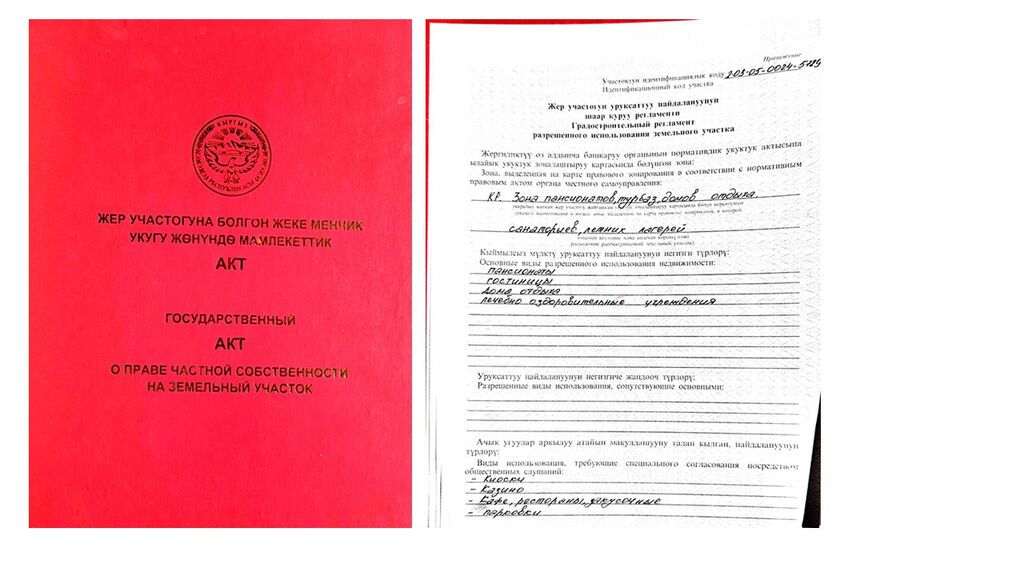 КЫРГЫЗ
РЕСПУБЛИКАСЫ
ЖЕР УЧАСТОГУНА БОЛГОН ЖЕКЕ МЕНЧИК
УКУГУ ЖӨНҮНДӨ МАМЛЕКЕТТИК
АКТ
ГОСУДАРСТВЕННЫЙ
АКТ
О ПРАВЕ ЧАСТНОЙ СОБСТВЕННОСТИ
НА ЗЕМЕЛЬНЫЙ УЧАСТОК
Приложение
Участоктун идентификациялык коду
Идентификационный код участка
Жер участогун уруксаттуу пайдалануунун
шаар куруу регламенти
Градостроительный регламент
разрешенного использования земельного участка
Жергиликтүү өз алдынча башкаруу органынын нормативдик укуктук актысына
ылайык укуктук зоналаштыруу картасында бөлүнгөн зона:
Зона, выделенная на карте правового зонирования в соответствии с нормативным
правовым актом органа местного самоуправления:
КР. Зона пансионатов, турбаз, домов отдыха.
санаториев, летних лагерей
Кыймылсыз мүлктү уруксаттуу пайдалануунун негизги түрлөрү:
Основные виды разрешенного использования недвижимости:
пансионаты
гостиницы
дома отдыха
лечебно оздоровительные учреждения
Уруксаттуу пайдалануунун негизгиге жандооч түрлөрү:
Разрешенные виды использования, сопутствующие основными:
Ачык угуулар аркылуу атайын макулдашууну талап кылган, пайдалануунун
түрлөрү:
Виды использования, требующие специального согласования посредством
общественных слушаний:
- Киоски
- Казино
- Кафе, рестораны, закусочные
- парковки